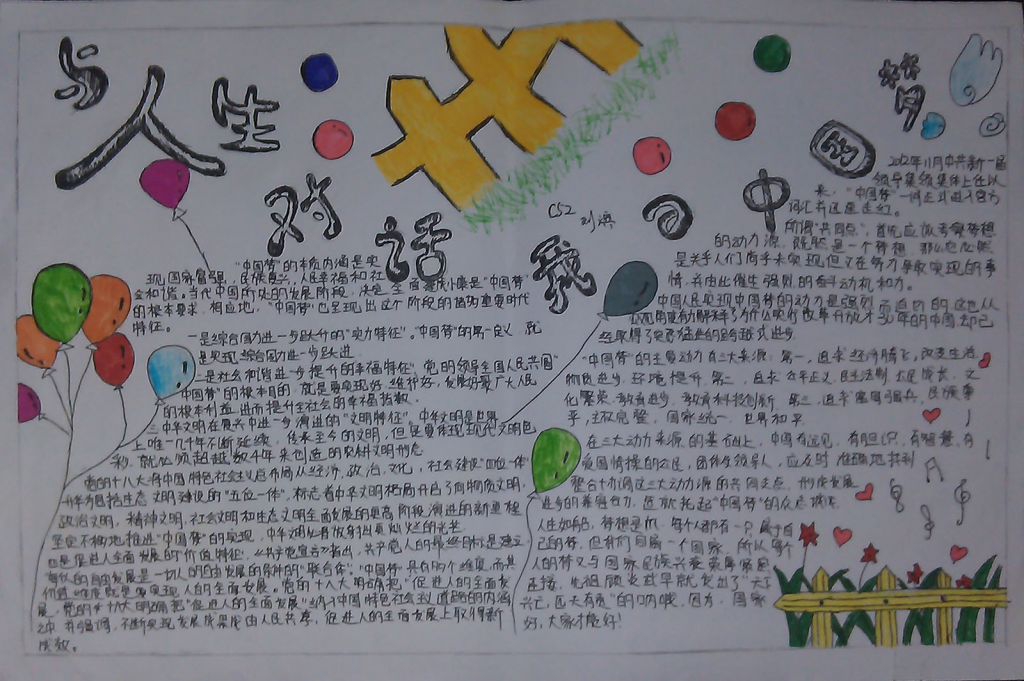 与人生对话
我的中国梦
C52 刘滨
"中国梦"的本质内涵是实
现国家富强、民族复兴、人民幸福和社
会和谐。当代中国所处的发展阶段,决定全面建成小康是"中国梦"
的根本要求,相应地,"中国梦"也呈现出这个阶段的诸多重要时代
特征。
一是综合国力进一步跃升的"实力特征"。"中国梦"的第一定义,就
是实现综合国力进一步跃进
二是社会和谐进一步提升的幸福特征,党的领导全国人民共圆
"中国梦"的根本目的,就是要实现好、维护好、发展好最广大人民
的根本利益,进而提升全社会的幸福指数。
三中华文明在复兴中进一步演进的"文明特征",中华文明是世界
上唯一几千年不断延续、传承至今的文明,但
彩,就必须超越数千年来创造的农耕文明形态
党的十八大将中国特色社会主义总布局从经济、政治、文化、社会建设"四位一体"
升华为包括生态文明建设的"五位一体",标志着中华文明格局开启了向物质文明,
政治文明,精神文明,社会文明和生态文明全面发展的更高阶段演进的新里程
坚定不移地推进"中国梦"的实现,中华文明必将放射出更灿烂的光芒
也是促进人全面发展的"价值特征"。《共产党宣言》指出,共产党人的最终目标是建立
每个人的自由发展是一切人的自由发展的条件的"联合体"。"中国梦"具有多个维度,而其
价值维度就是要实现人的全面发展。党的十八大明确把"促进人的全面发
展,党的十八大明确把"促进人的全面发展"纳入中国特色社会主义道路的内涵
之中,并强调,不断实现发展成果由人民共享,促进人的全面发展上取得新
成效。
2012年11月中共新一届
领导集体上任以
来,"中国梦"一词正式进入官方
词汇并迅速走红。
所谓"共同点",首先应该考察梦想
的动力源。既然是一个梦想,那么它必然
是关乎人们尚未实现但又在努力争取实现的事
情,并由此催生强烈的奋斗动机和力。
中国人民实现中国梦的动力是强烈而迫切的,这也从
为什么实行改革开放才30年的中国却已
经取得了突飞猛进的跨越式进步
"中国梦"的主要动力有三大来源。第一,追求经济腾飞,改变生活
物质进步、环境提升。第二,追求公平正义,民主法制,公民成长,文
化繁荣、教育进步,教育科技创新。第三,追求富国强兵,民族尊
严,主权完整,国家统一,世界和平
在三大动力来源的基础上,中国有远见,有胆识,有智慧,有
爱国情操的公民,团体与领导人,应及时准确地找到
整合协调这三大动力源的共同支点,形成发展
进步的兼得合力,这就托起"中国梦"的众志成城
人生如船,梦想是帆。每个人都有一只属于自
己的梦,但我们同属一个国家,所以每个
人的梦又与国家民族兴衰荣辱紧密
连接,先祖顾炎武早就发出了"天下
兴亡,匹夫有责"的呐喊。因为,国家
好,大家才能好!